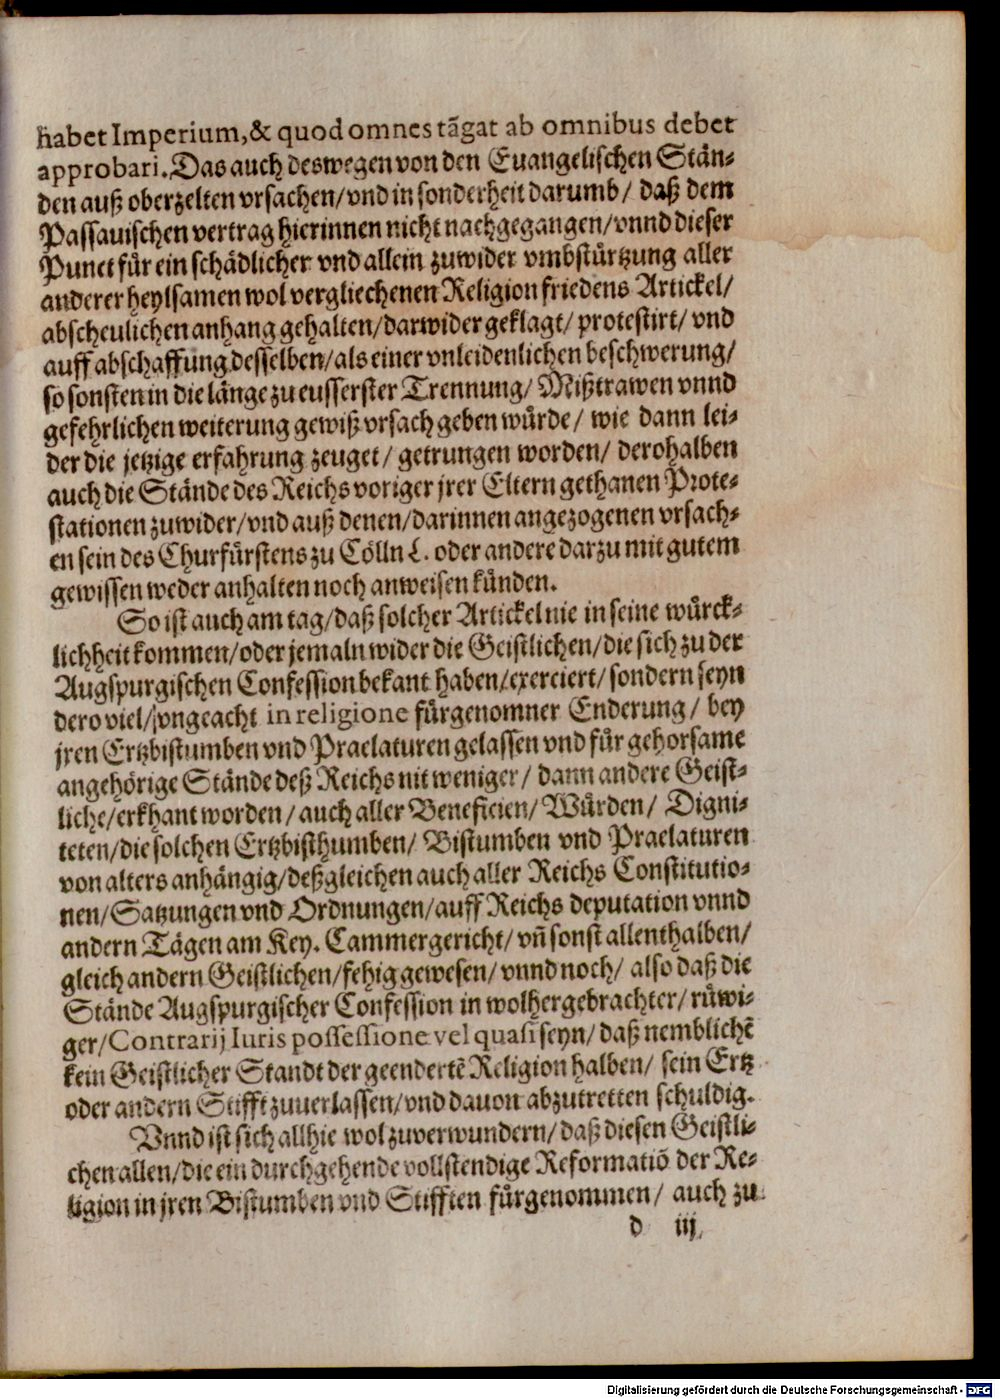 habet Imperium, & quod omnes tãgat ab omnibus debet
approbari. Das auch deswegen von den Euangelischen Stän-
den auß oberzelten vrsachen/ vnd in sonderheit darumb/ daß dem
Passauischen vertrag hierinnen nicht nachgegangen/ vnnd dieser
Punct für ein schädlicher vnd allein zuwider vmbstürtzung aller
anderer heylsamen wol vergliechenen Religion friedens Artickel/
abscheulichen anhang gehalten/ darwider geklagt/ protestirt/ vnd
auff abschaffung desselben/ als einer vnleidenlichen beschwerung/
so sonsten in die länge zu eusserster Trennung/ Mißtrawen vnnd
gefehrlichen weiterung gewiß vrsach geben würde/ wie dann lei-
der die jetzige erfahrung zeuget/ getrungen worden/ derohalben
auch die Stände des Reichs voriger jrer Eltern gethanen Prote-
stationen zuwider/ vnd auß denen/ darinnen angezogenen vrsach-
en sein des Churfürstens zu Cölln L. oder andere darzu mit gutem
gewissen weder anhalten noch anweisen künden.
So ist auch am tag/ daß solcher Artickel nie in seine würck-
lichheit kommen/ oder jemaln wider die Geistlichen/ die sich zu der
Augspurgischen Confession bekant haben/ exerciert/ sondern seyn
dero viel/ vngeacht in religione fürgenomner Enderung/ bey
jren Ertzbistumben vnd Praelaturen gelassen vnd für gehorsame
angehörige Stände deß Reichs nit weniger/ dann andere Geist-
liche/ erkhant worden/ auch aller Beneficien/ Würden/ Digni-
teten/ die solchen Ertzbisthumben/ Bistumben vnd Praelaturen
von alters anhängig/ deßgleichen auch aller Reichs Constitutio-
nen/ Satzungen vnd Ordnungen/ auff Reichs deputation vnnd
andern Tägen am Key. Cammergericht/ vñ sonst allenthalben/
gleich andern Geistlichen/ fehig gewesen/ vnnd noch/ also daß die
Stände Augspurgischer Confession in wolhergebrachter/ rüwi-
ger/ Contrarij Iuris possessione vel quasi seyn/ daß nemblichẽ
kein Geistlicher Standt der geendertẽ Religion halben/ sein Ertz
oder andern Stifft zuuerlassen/ vnd dauon abzutretten schuldig.
Vnnd ist sich allhie wol zuverwundern/ daß diesen Geistli-
chen allen/ die ein durchgehende vollstendige Reformatiõ der Re-
ligion in jren Bistumben vnd Stifften fürgenommen/ auch zu
d iij
Digitalisierung gefördert durch die Deutsche Forschungsgemeinschaft - DFG